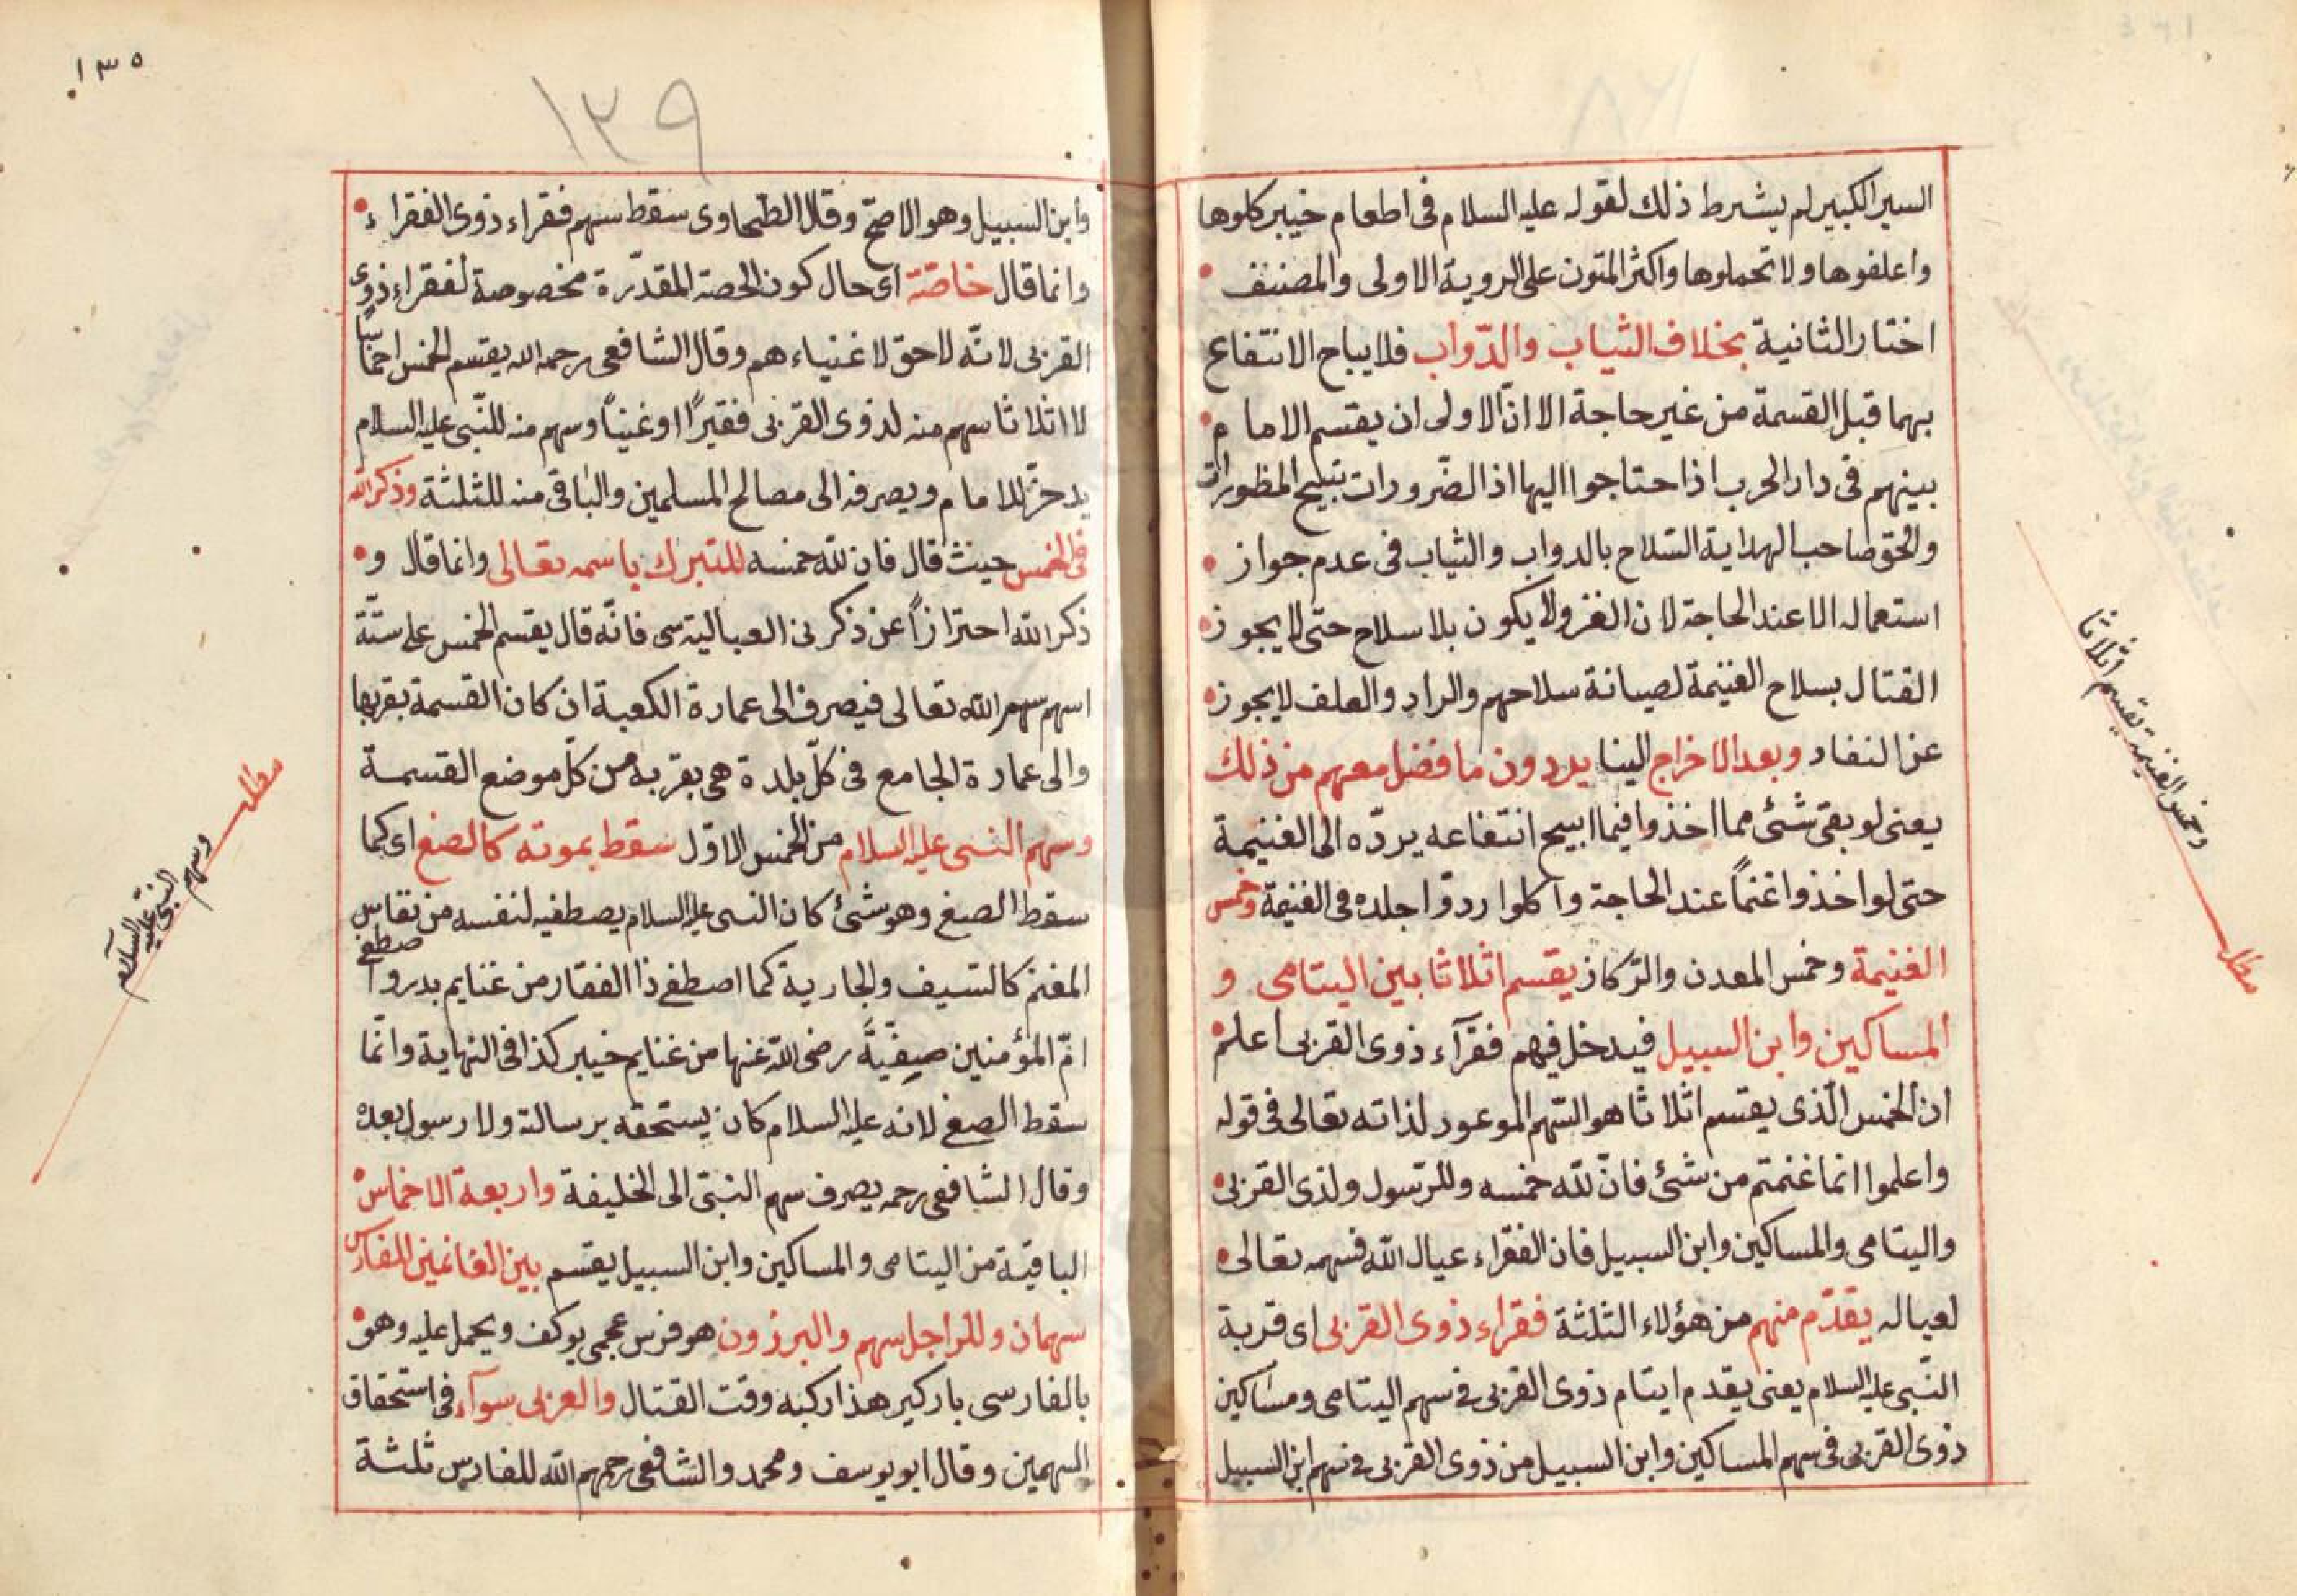 السير الكبير لم يشترط ذلك لقوله عليه السلام فى اطعام خيبر كلوها
واعلفوها ولا تحملوها واكثر المتون على الروية الاولى والمصنف
اختار الثانية بخلاف الثياب والدّواب فلا يباح الانتفاع
بهما قبل القسمة من غير حاجة الا انّ الاولى ان يقتسم الامام
بينهم فى دار الحرب اذا احتاجوا اليها اذ الضّرورات تبيح المظورات
والحق صاحب الهداية السّلاح بالدواب والثياب فى عدم جواز
استعماله الا عند الحاجة لان الغزو لا يكون بلا سلاح حتى لا يجوز
القتال بسلاح الغنيمة لصيانة سلاحهم والزاد والعلف لا يجوز
عن النفاد وبعد الاخراج الينا يردون ما فضل معهم من ذلك
يعنى لو بقى شئ مما اخذوا فيما ابيح انتفاعه يردّه الى الغنيمة
حتى لو اخذوا غنماً عند الحاجة واكلوا ردّوا جلده فى الغنيمة وخمس
الغنيمة وخمس المعدن والرّكاز يقسم اثلاثا بين اليتامى و
المساكين وابن السبيل فيدخل فيهم فقرآء ذوى القربى اعلم
ان الخمس الّذى يقتسم اثلاثا هو السّهم الموعود لذاته تعالى فى قوله
واعلموا انما غنمتم من شئ فانّ لله خمسه وللرّسول ولذى القربى
واليتامى والمساكين وابن السبيل فان الفقراء عيال الله فسهمه تعالى
لعياله يقدّم منهم من هؤلاء الثلثة فقراء ذوى القربى اى قربة
النّبى عليه السلام يعنى يقدم ايتام ذوى القربى فى سهم اليتامى ومساكين
ذوى القربى فى سهم المساكين وابن السبيل من ذوى القربى فى سهم ابن السبيل
وخمس الغنيمة يقسم اثلاثا
مطلب
١٣٥
١٣٩
وابن السبيل وهو الاصحّ وقال الطّحاوى سقط سهم فقراء ذوى الفقراء
وانما قال خاصّة اى حال كون الحصة المقدّرة مخصوصة لفقراء ذوى
القربى لانّه لا حق لاغنياءهم وقال الشافعى رحمه الله يقتسم الخمس اخماسًا
لا اثلاثا سهم منه لذوى القربى فقيرًا او غنياً وسهم منه للنّبى عليه السلام
يدخرّ للامام ويصرفه الى مصالح المسلمين والباقى منه للثلثة وذكر الله
فى الخمس حيث قال فان لله خمسه للتبرك باسمه تعالى وانما قال و
ذكر الله احترازاً عن ذكر نى العباليته سى فانّه قال يقسم الخمس على ستّة
اسهم سهم الله تعالى فيصرف الى عمارة الكعبة ان كان القسمة بقربها
والى عمارة الجامع فى كلّ بلدة هى بقربه من كلّ موضع القسمة
وسهم النبى عليه السلام من الخمس الاوّل سقط بموته كالصفى اى كما
سقط الصفى وهو شئ كان النبى عليه السلام يصطفيه لنفسه من نفايس
المغنم كالسّيف والجارية كما اصطفى ذا الفقار من غنايم بدر واصطفى
امّ المؤمنين صفيّة رضى الله عنها من غنايم خيبر كذا فى النهاية وانّما
سقط الصفى لانه عليه السلام كان يستحقه برسالته ولا رسول بعده
وقال الشافعى رحمه يصرف سهم النبىّ الى الخليفة واربعة الاخماس
الباقية من اليتامى والمساكين وابن السبيل يقتسم بين الغانمين للفارس
سهمان وللراجل سهم والبرزون هو فرس عجمى يوكف ويحمل عليه وهو
بالفارسى باركير هذا ركبه وقت القتال والعربى سوآء فى استحقاق
السهمين وقال ابو يوسف ومحمد والشافعى رحمهم الله للفارس ثلثة
مطلب
وسهم النبّى عليه السلام